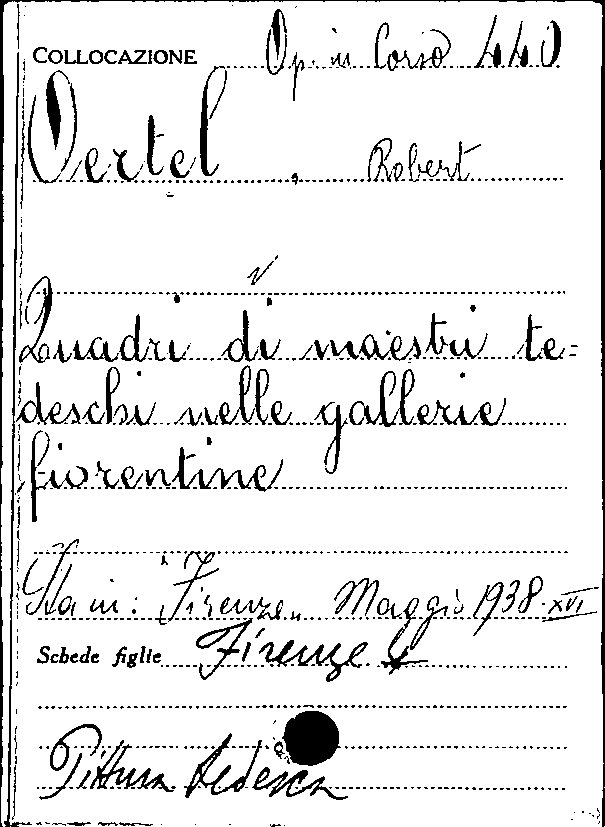 COLLOCAZIONE Op. in Corso 440
Oertel, Robert
Quadri di maestri te=
deschi nelle gallerie
fiorentine
Sta in: "Firenze" Maggio 1938. XVI
Schede figlie Firenze
Pittura tedesca